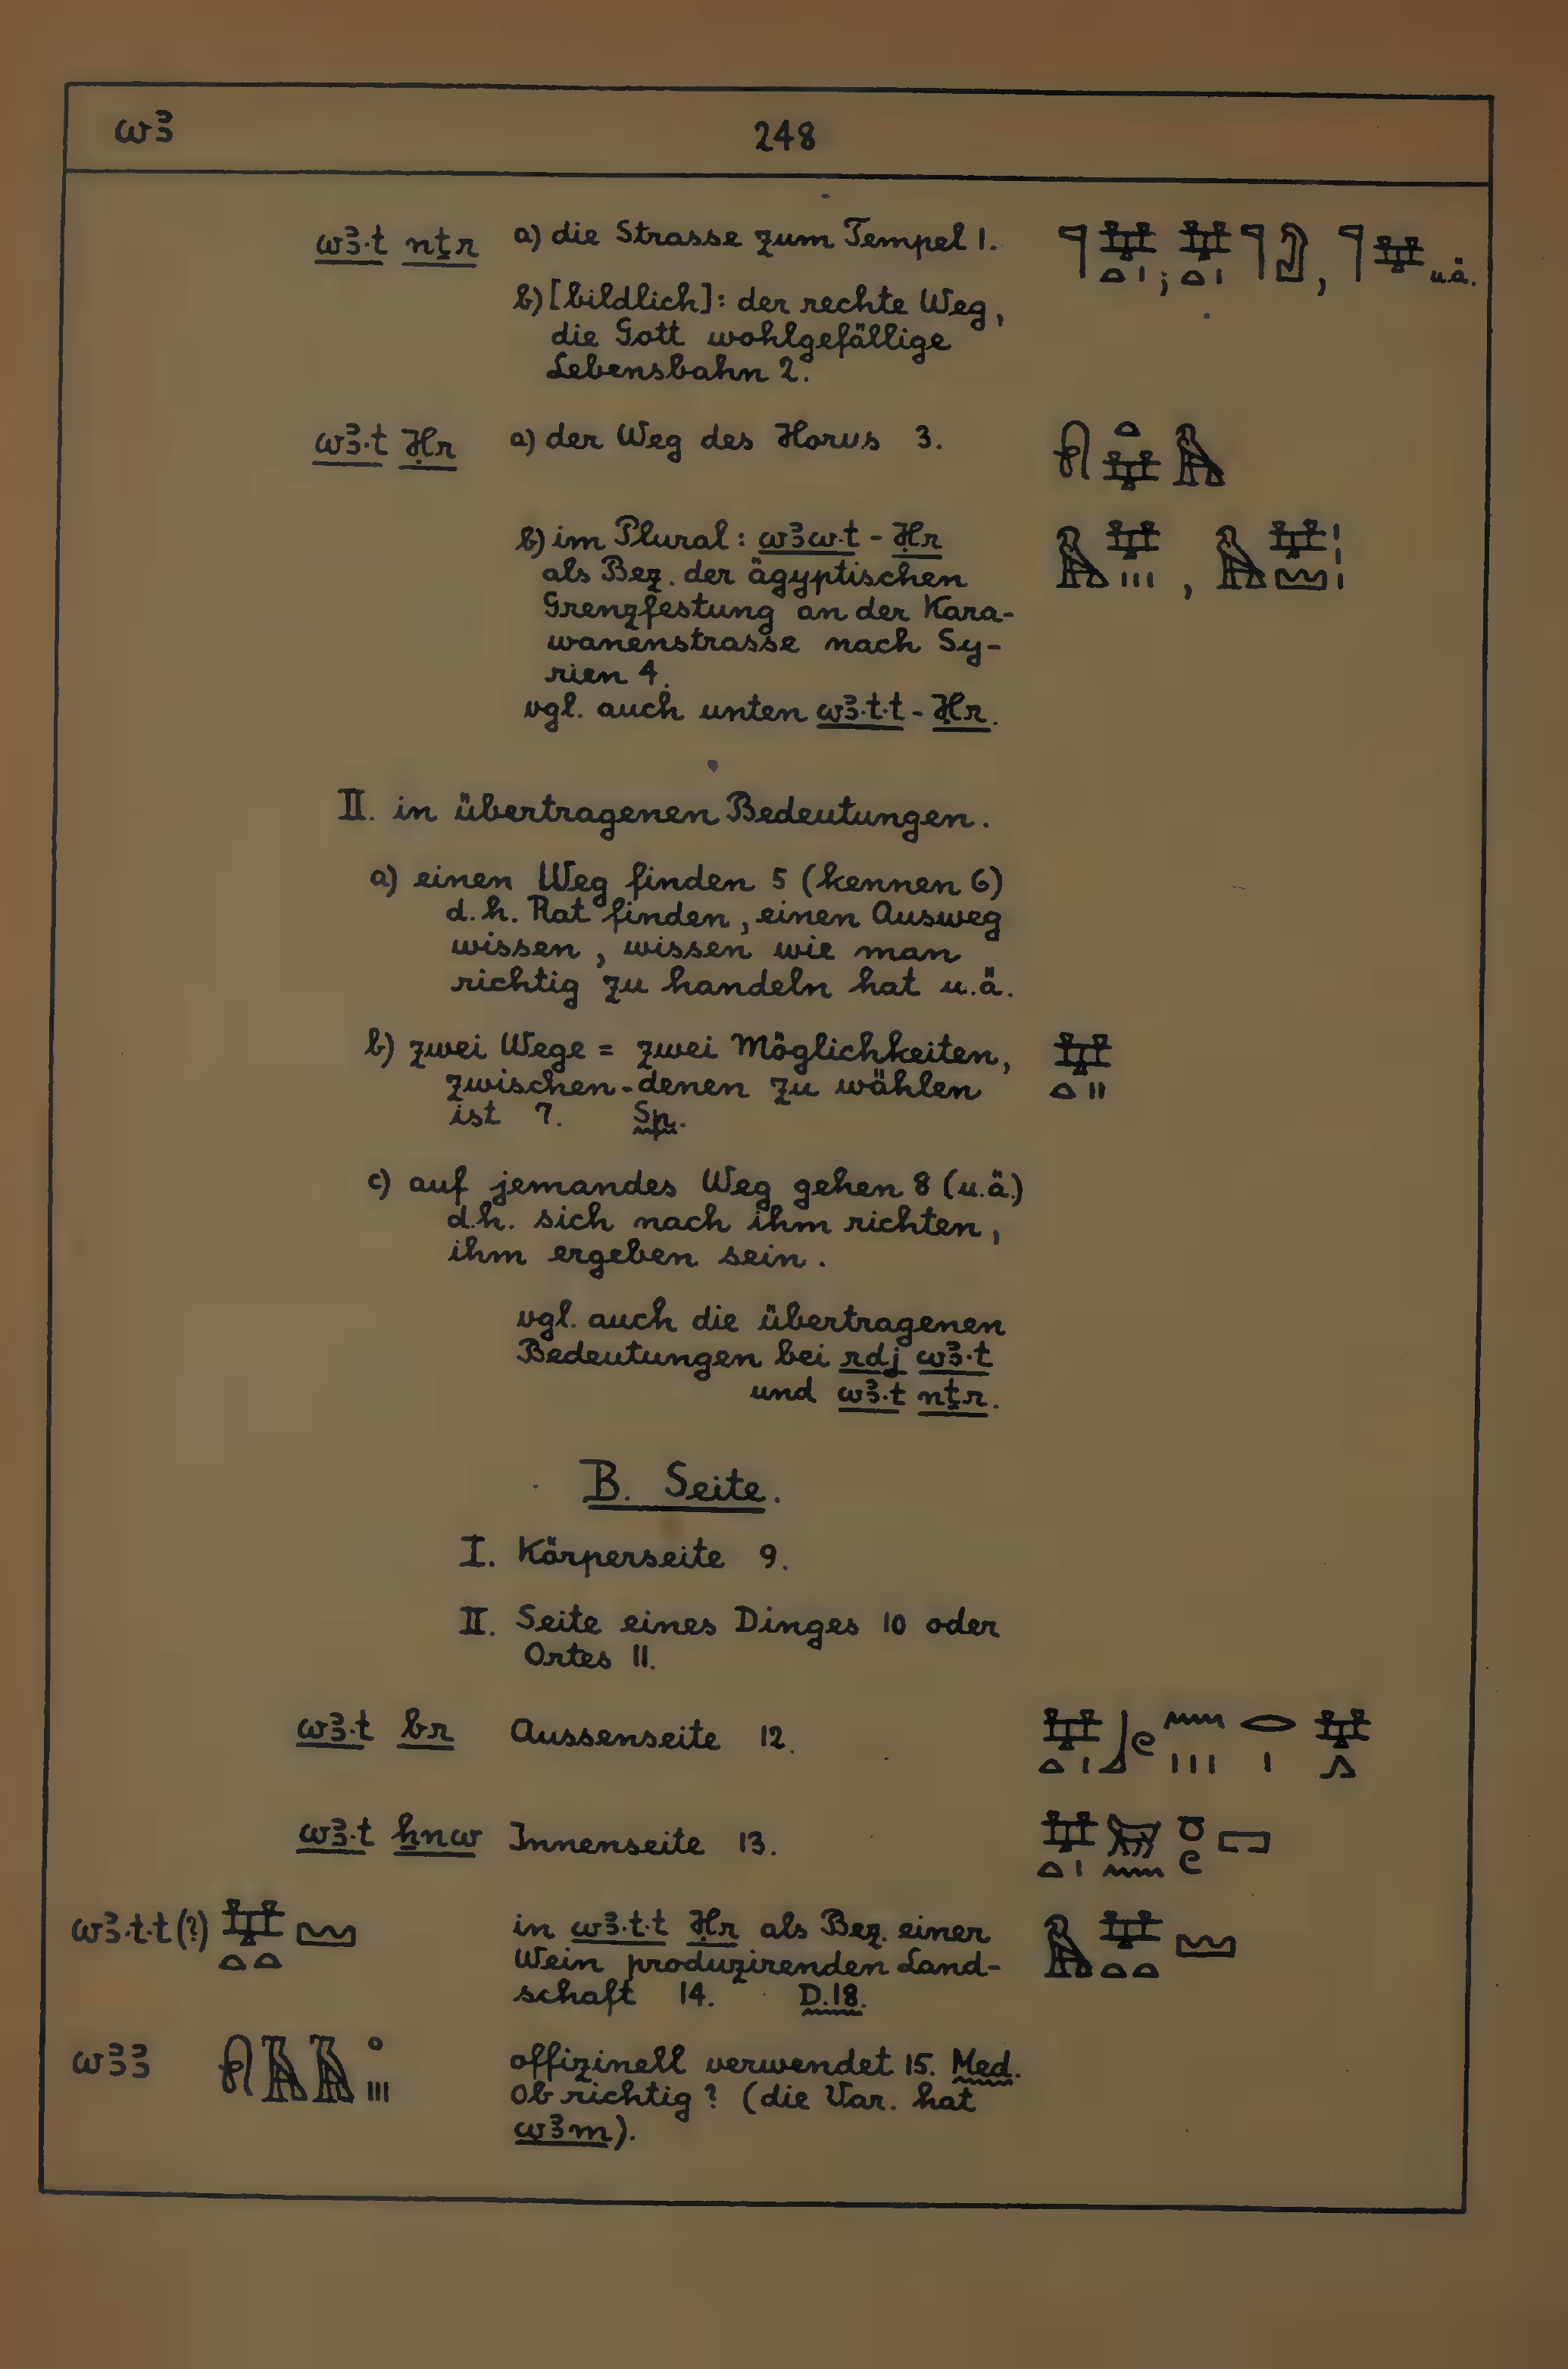 wꜣ 248
wꜣ.t nṯr a) die Strasse zum Tempel 1. u.ä.
b) [bildlich]: der rechte Weg,
die Gott wohlgefällige
Lebensbahn 2.
wꜣ.t Ḥr a) der Weg des Horus 3.
b) im Plural: wꜣw.t - Ḥr
als Bez. der ägyptischen
Grenzfestung an der Kara-
wanenstrasse nach Sy-
rien 4.
vgl. auch unten wꜣ.t.t - Ḥr.
II. in übertragenen Bedeutungen.
a) einen Weg finden 5 (kennen 6)
d.h. Rat finden, einen Ausweg
wissen, wissen wie man
richtig zu handeln hat u.ä.
b) zwei Wege = zwei Möglichkeiten,
zwischen denen zu wählen
ist 7. Sp.
c) auf jemandes Weg gehen 8 (u.ä.)
d.h. sich nach ihm richten,
ihm ergeben sein.
vgl. auch die übertragenen
Bedeutungen bei rdj wꜣ.t
und wꜣ.t nṯr.
B. Seite.
I. Körperseite 9.
II. Seite eines Dinges 10 oder
Ortes 11.
wꜣ.t br Aussenseite 12.
wꜣ.t ẖnw Innenseite 13.
wꜣ.t.t (?) in wꜣ.t.t Ḥr als Bez. einer
Wein produzirenden Land-
schaft 14. D.18.
wꜣꜣ offizinell verwendet 15. Med.
Ob richtig? (die Var. hat
wꜣm).